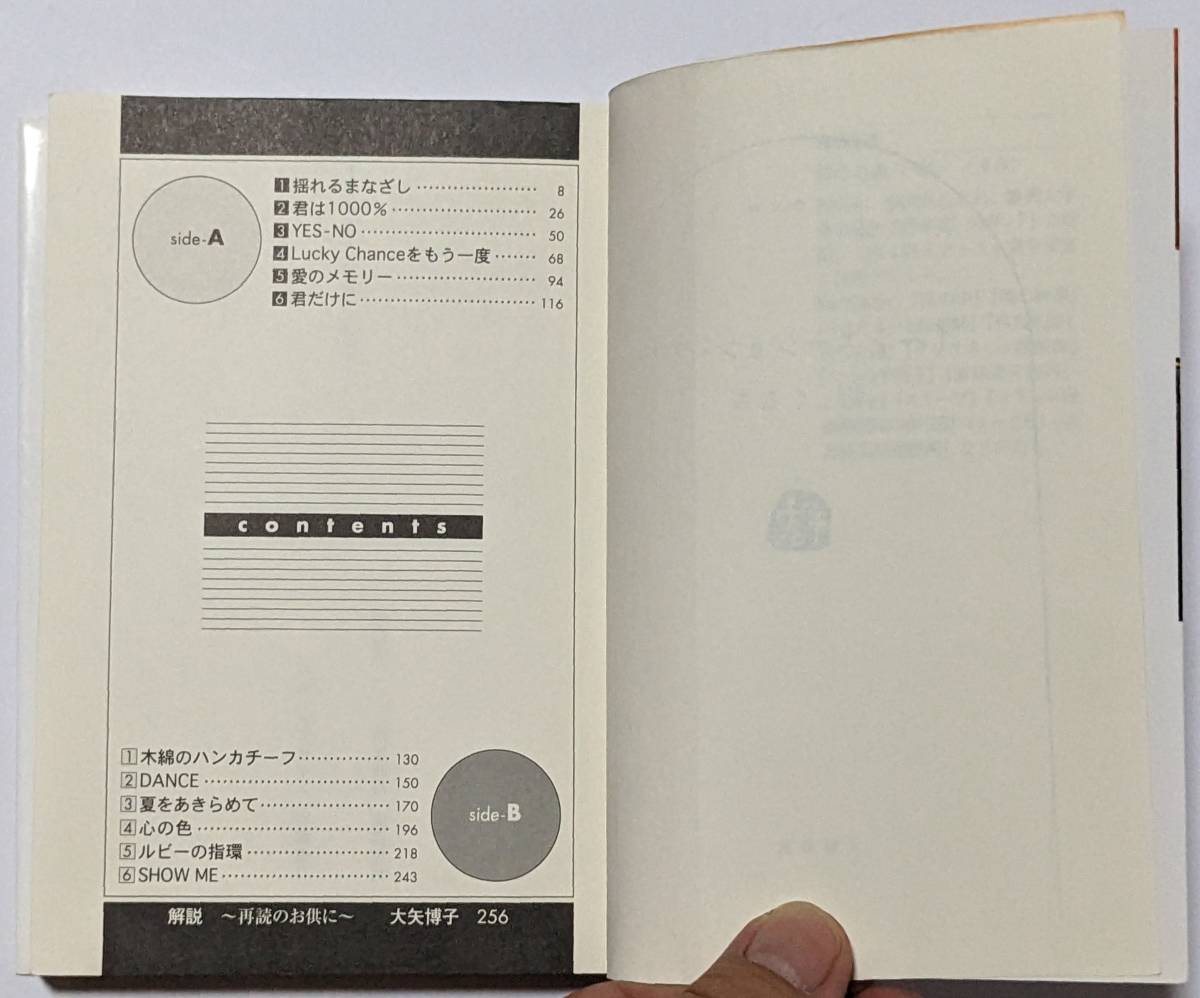 side-A
1 揺れるまなざし 8
2 君は1000% 26
3 YES-NO 50
4 Lucky Chanceをもう一度 68
5 愛のメモリー 94
6 君だけに 116
contents
1 木綿のハンカチーフ 130
2 DANCE 150
3 夏をあきらめて 170
4 心の色 196
5 ルビーの指環 218
6 SHOW ME 243
side-B
解説 ～再読のお供に～ 大矢博子 256